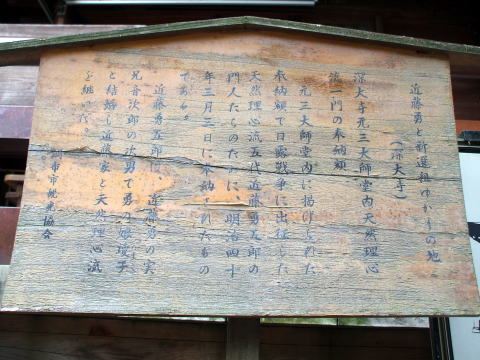 近藤勇と新選組ゆかりの地
（深大寺）
深大寺元三大師堂内天然理心
流一門の奉納額
元三大師堂内に掲げられた
奉納額で日露戦争に出征した
天然理心流五代近藤勇五郎の
門人たちのために、明治四十
年三月三日に奉納されたもの
である。
近藤勇五郎は、近藤勇の実
兄音次郎の次男で勇の娘瓊子
と結婚し近藤家と天然理心流
を継いだ。
布市観光協会